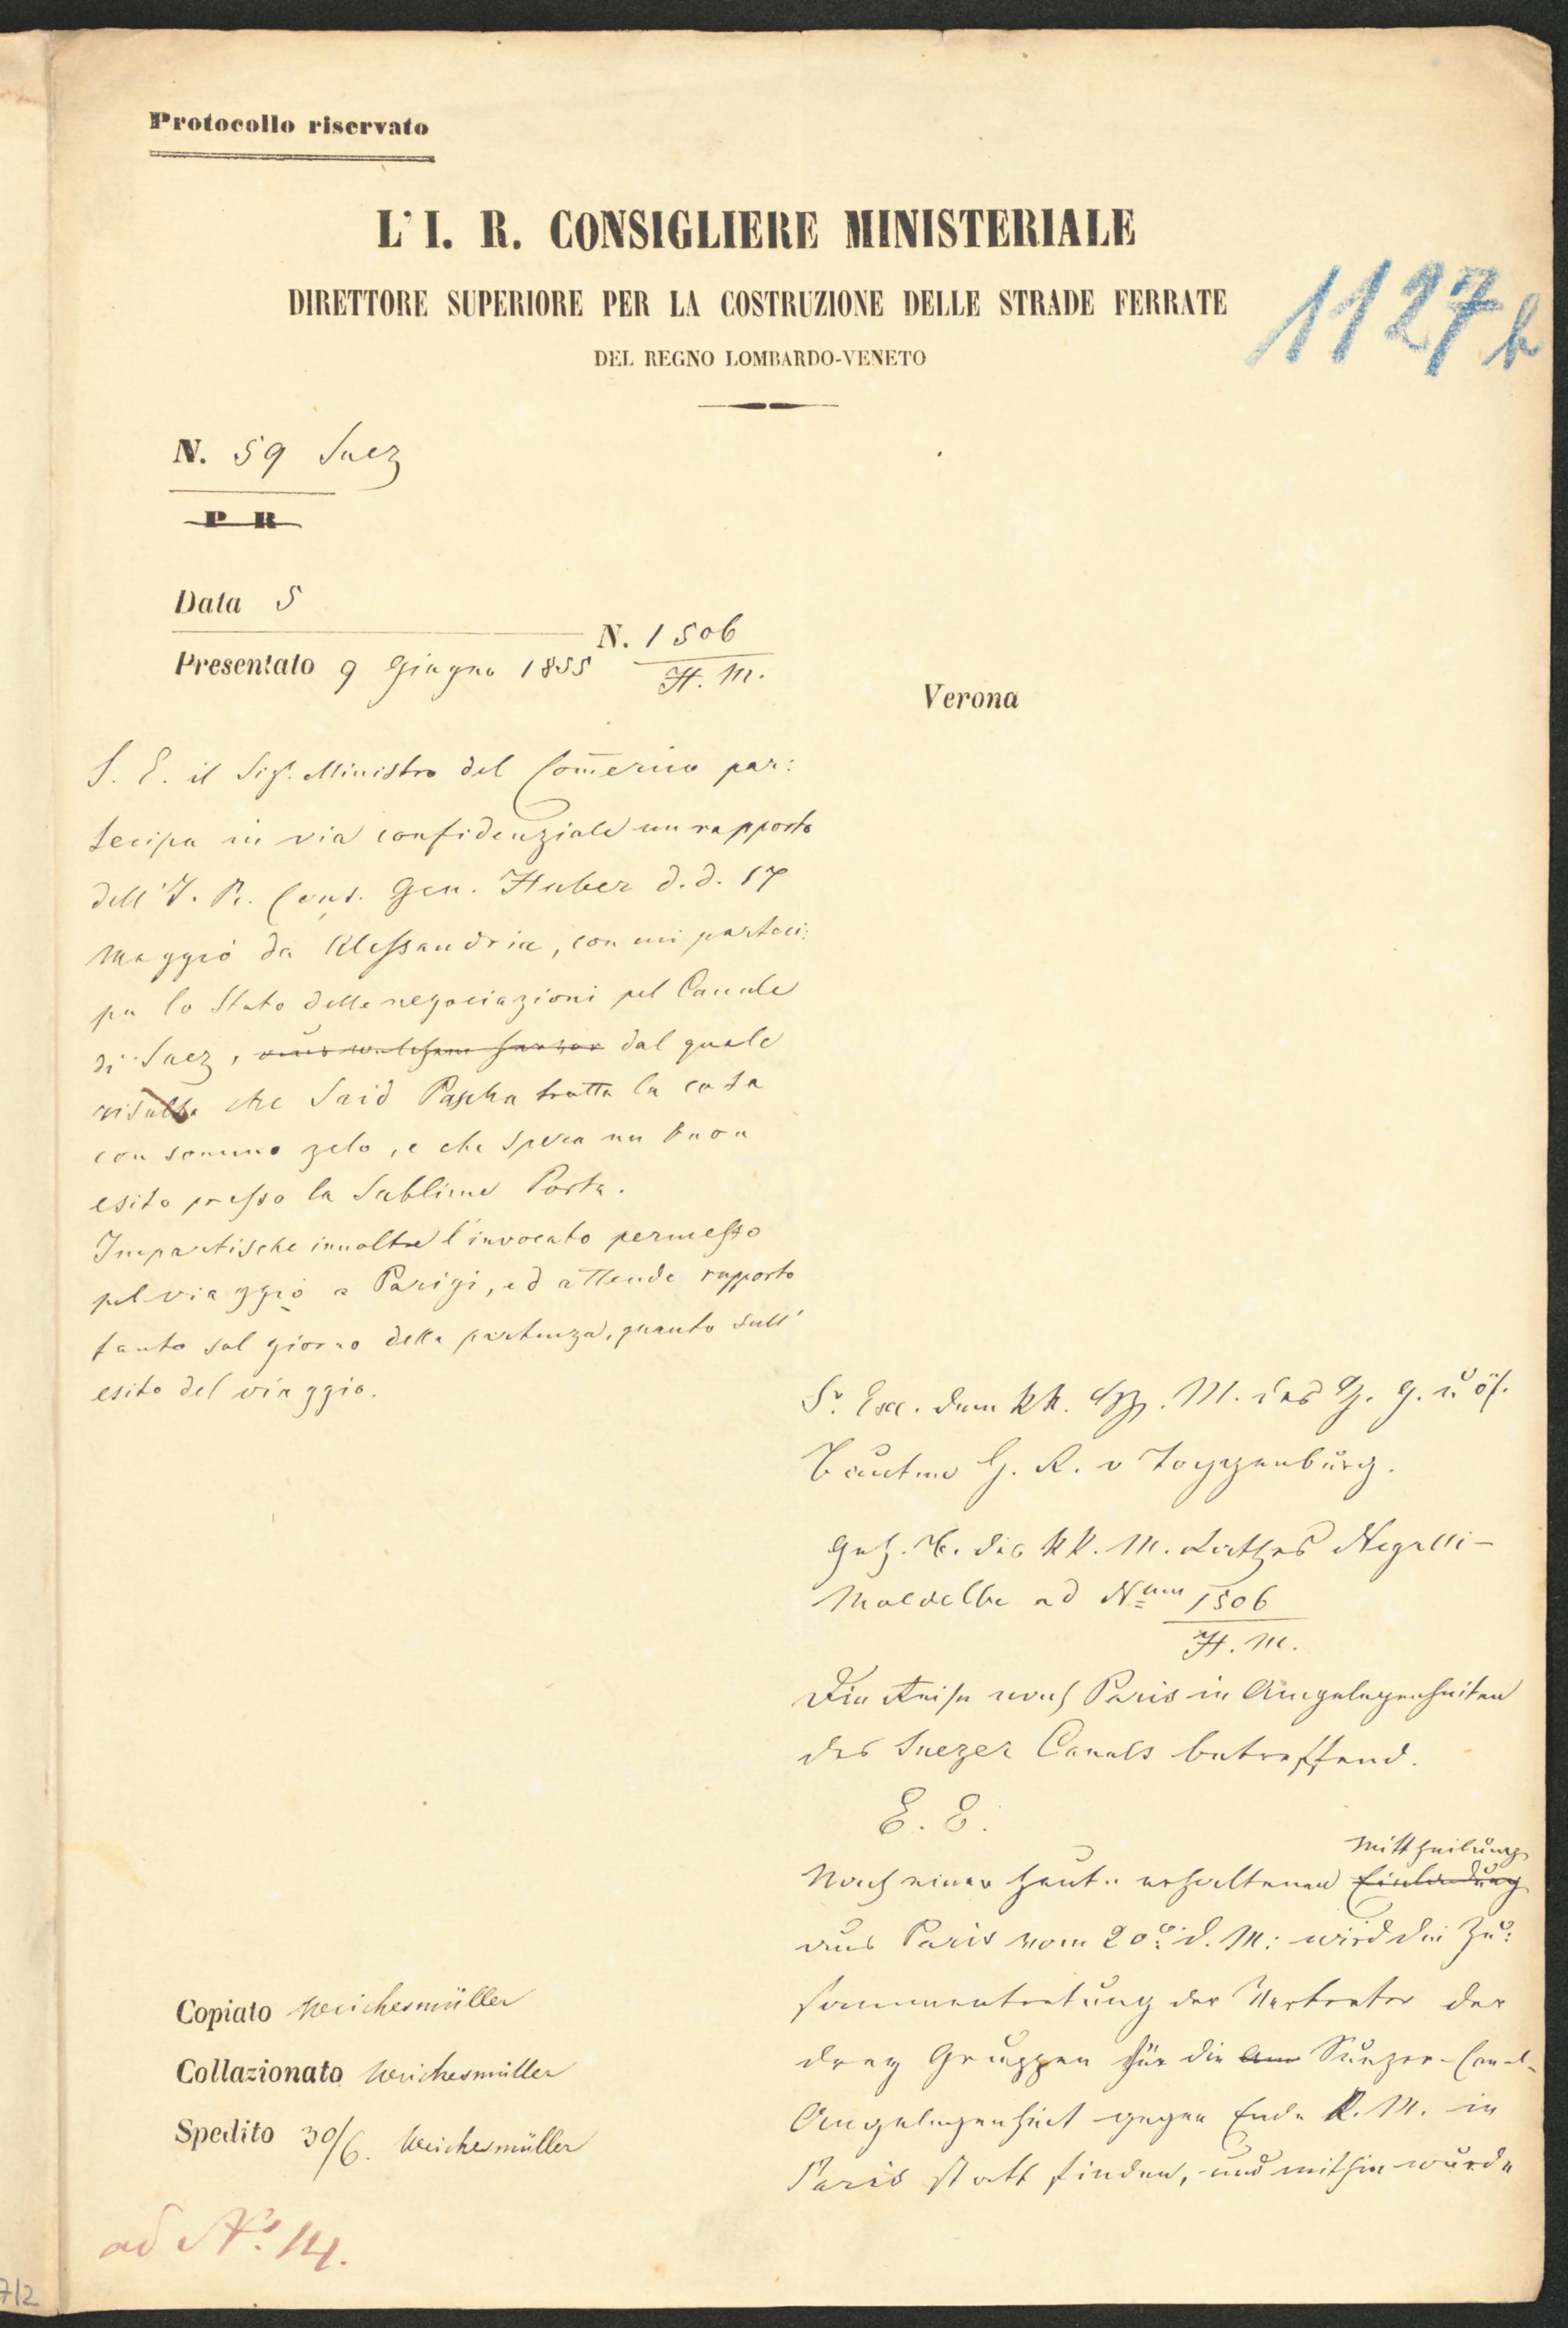 Protocollo riservato
L' I. R. CONSIGLIERE MINISTERIALE
DIRETTORE SUPERIORE PER LA COSTRUZIONE DELLE STRADE FERRATE
DEL REGNO LOMBARDO-VENETO
1127 b
N. 59 Suez
P R
Data 5
N. 1506
H. M.
Presentato 9 Giugno 1855
Verona
S. E. il Sigr. Ministro del Com̅ercio par:
tecipa in via confidenziale un rapporto
dell' I. R. Cons. Gen. Huber d. d. 17
Maggio da Alessandria, con cui parteci:
pa lo Stato delle negociazioni pel Canale
di Suez, dal quale
risulta che Said Pascha tratta la cosa
con sommo zelo, e che spera un buon
esito presso la Sublime Porta.
Impartische inoltre l'invocato permesso
pel viaggio a Parigi, ed attende rapporto
tanto sul giorno della partenza, quanto sull'
esito del viaggio.
Sr. Exc. dem kk. M. des H. G. u. öf.
Bauten H. R. v Toggenburg.
Geh. B. des kk. M. Rathes Negrelli-
Moldelbe ad Num 1506
H. M.
Die Reise nach Paris in Angelegenheiten
des Suezer Canals betreffend.
E. E.
Mittheilung
Nach einer heute erhaltenen Einladung
aus Paris vom 20. d. M: wird die Zu:
sammentretung der Vertreter der
drey Gruppen für die Suezer-Canal-
Angelegenheit gegen Ende k. M. in
Paris statt finden, und mithin wurde
Copiato Weichesmüller
Collazionato Weichesmüller
Spedito 30/6. Weichesmüller
ad No. 14.
7/2